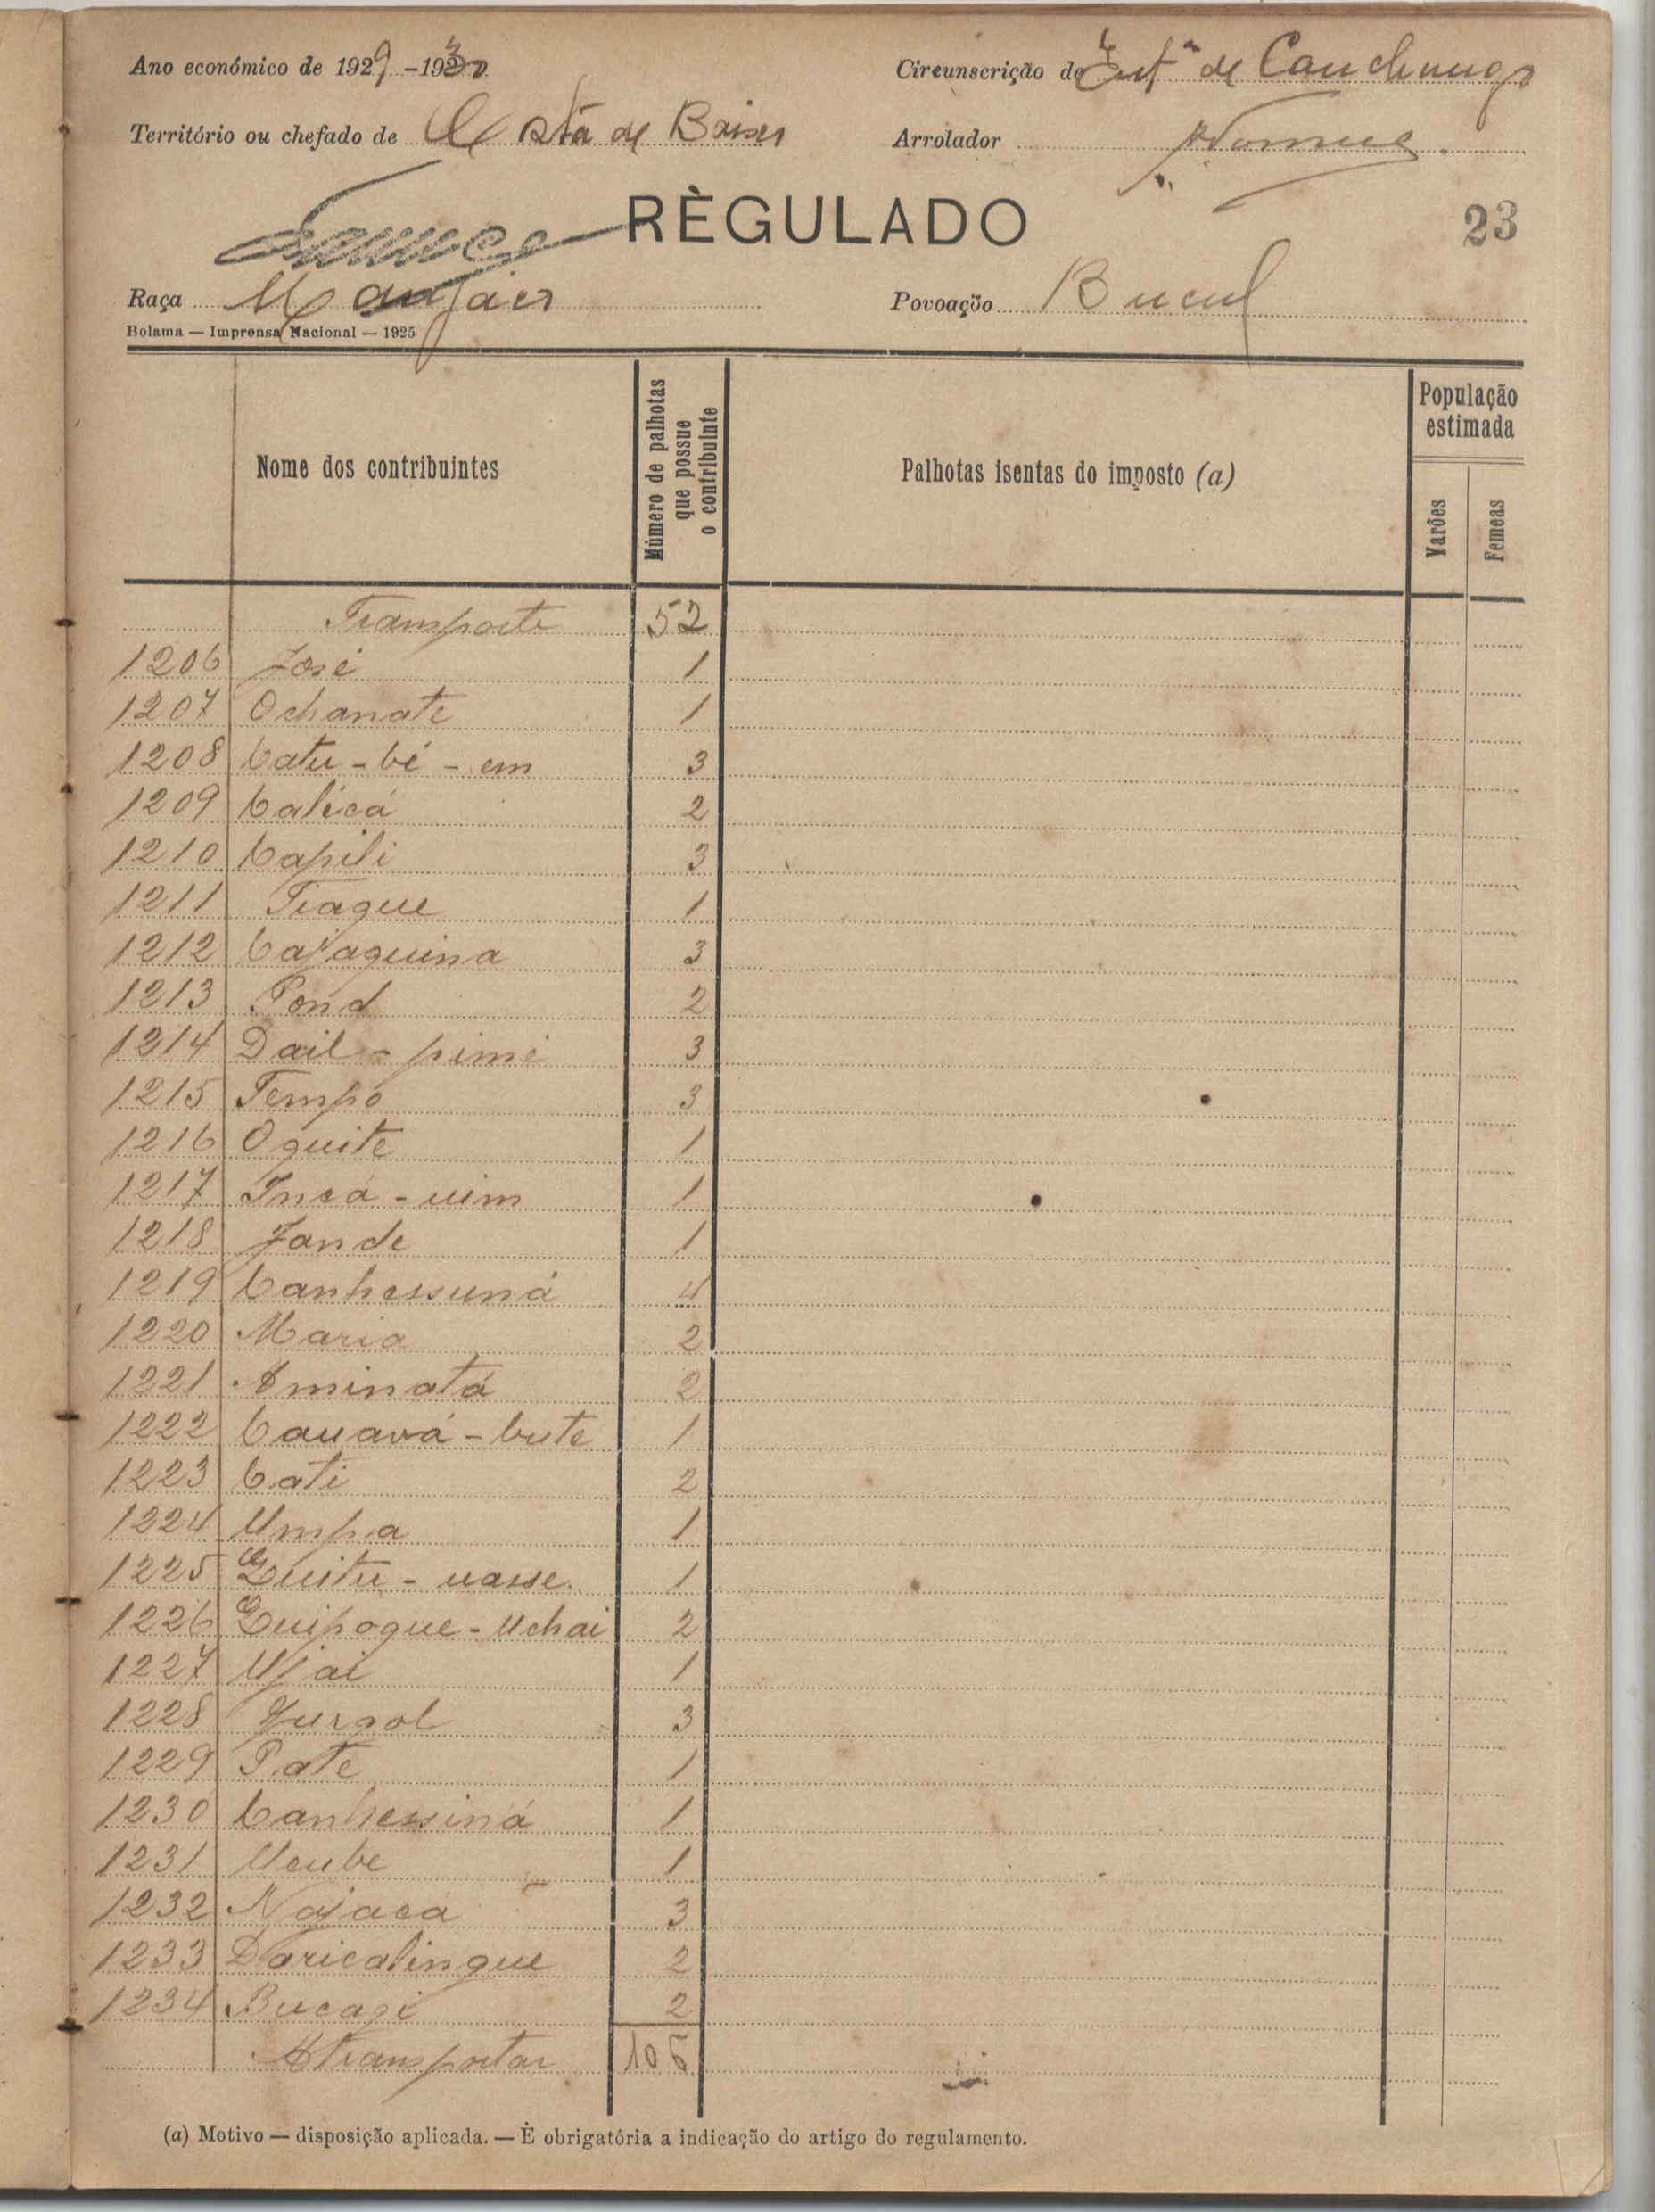 Ano económico de 1929-1930 Circunscrição de de Canchungo
Território ou chefado de Costa de Baixo Arrolador
RÈGULADO 23
Raça Manjaca Povoação Bucul
Bolama — Imprensa Nacional — 1925
Nome dos contribuintes Número de palhotas que possue o contribuinte Palhotas isentas do imposto (a) População estimada Varões Femeas
Transporte 52
1206 José 1
1207 Ochanate 1
1208 Catu-bé-em 3
1209 Calicá 2
1210 Capili 3
1211 Tiague 1
1212 Cajaquina 3
1213 Pond 2
1214 Dail-pimé 3
1215 Tempó 3
1216 Oquite 1
1217 Incá-uim 1
1218 Jande 1
1219 Canhessuná 4
1220 Maria 2
1221 Aminatá 2
1222 Cauavá-bute 1
1223 Cati 2
1224 Umpa 1
1225 Quitu-uasse 1
1226 Quipoque-Uchai 2
1227 Ujai 1
1228 Gurgol 3
1229 Pate 1
1230 Canhessiná 1
1231 Ucube 1
1232 Najacá 3
1233 Daricalingue 2
1234 Bucagi 2
A transportar 106
(a) Motivo — disposição aplicada. — È obrigatória a indicação do artigo do regulamento.